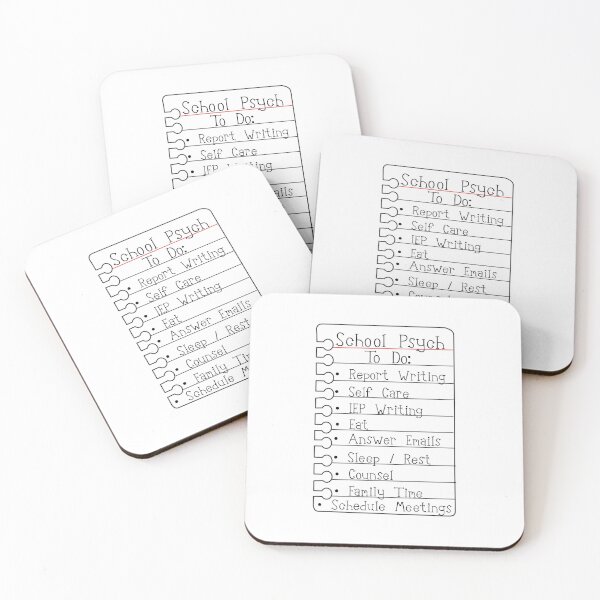 School Psych
To Do:
• Report Writing
• Self Care
• IEP Writing
School Psych
To Do:
• Report Writing
• Self Care
• IEP Writing
• Eat
• Answer Emails
• Sleep / Rest
School Psych
To Do:
• Report Writing
• Self Care
• IEP Writing
• Eat
• Answer Emails
• Sleep / Rest
• Counsel
• Family Time
• Schedule Meetings
School Psych
To Do:
• Report Writing
• Self Care
• IEP Writing
• Eat
• Answer Emails
• Sleep / Rest
• Counsel
• Family Time
• Schedule Meetings